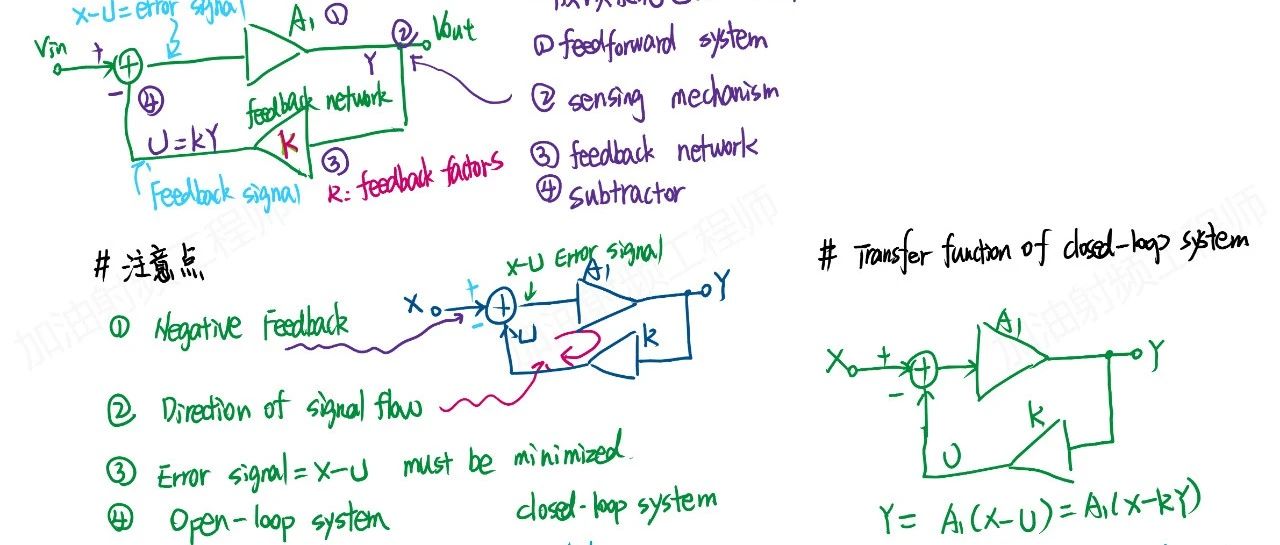 X-U=error signal
A₁ ①
Vin
+
-
④
②
Vout
Y
feedback network
U=kY
K
③
Feedback signal
k: feedback factors
① feedforward system
② sensing mechanism
③ feedback network
④ subtractor
# 注意点
① Negative Feedback
② Direction of signal flow
③ Error signal=X-U must be minimized.
④ Open-loop system
closed-loop system
X-U Error signal
A₁
X
+
-
U
k
Y
# Transfer function of closed-loop system
A₁
X
+
-
Y
k
U
Y= A₁(X-U)=A₁(X-kY)
加油射频工程师
加油射频工程师